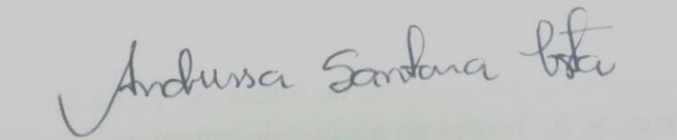 Andressa Santana Costa